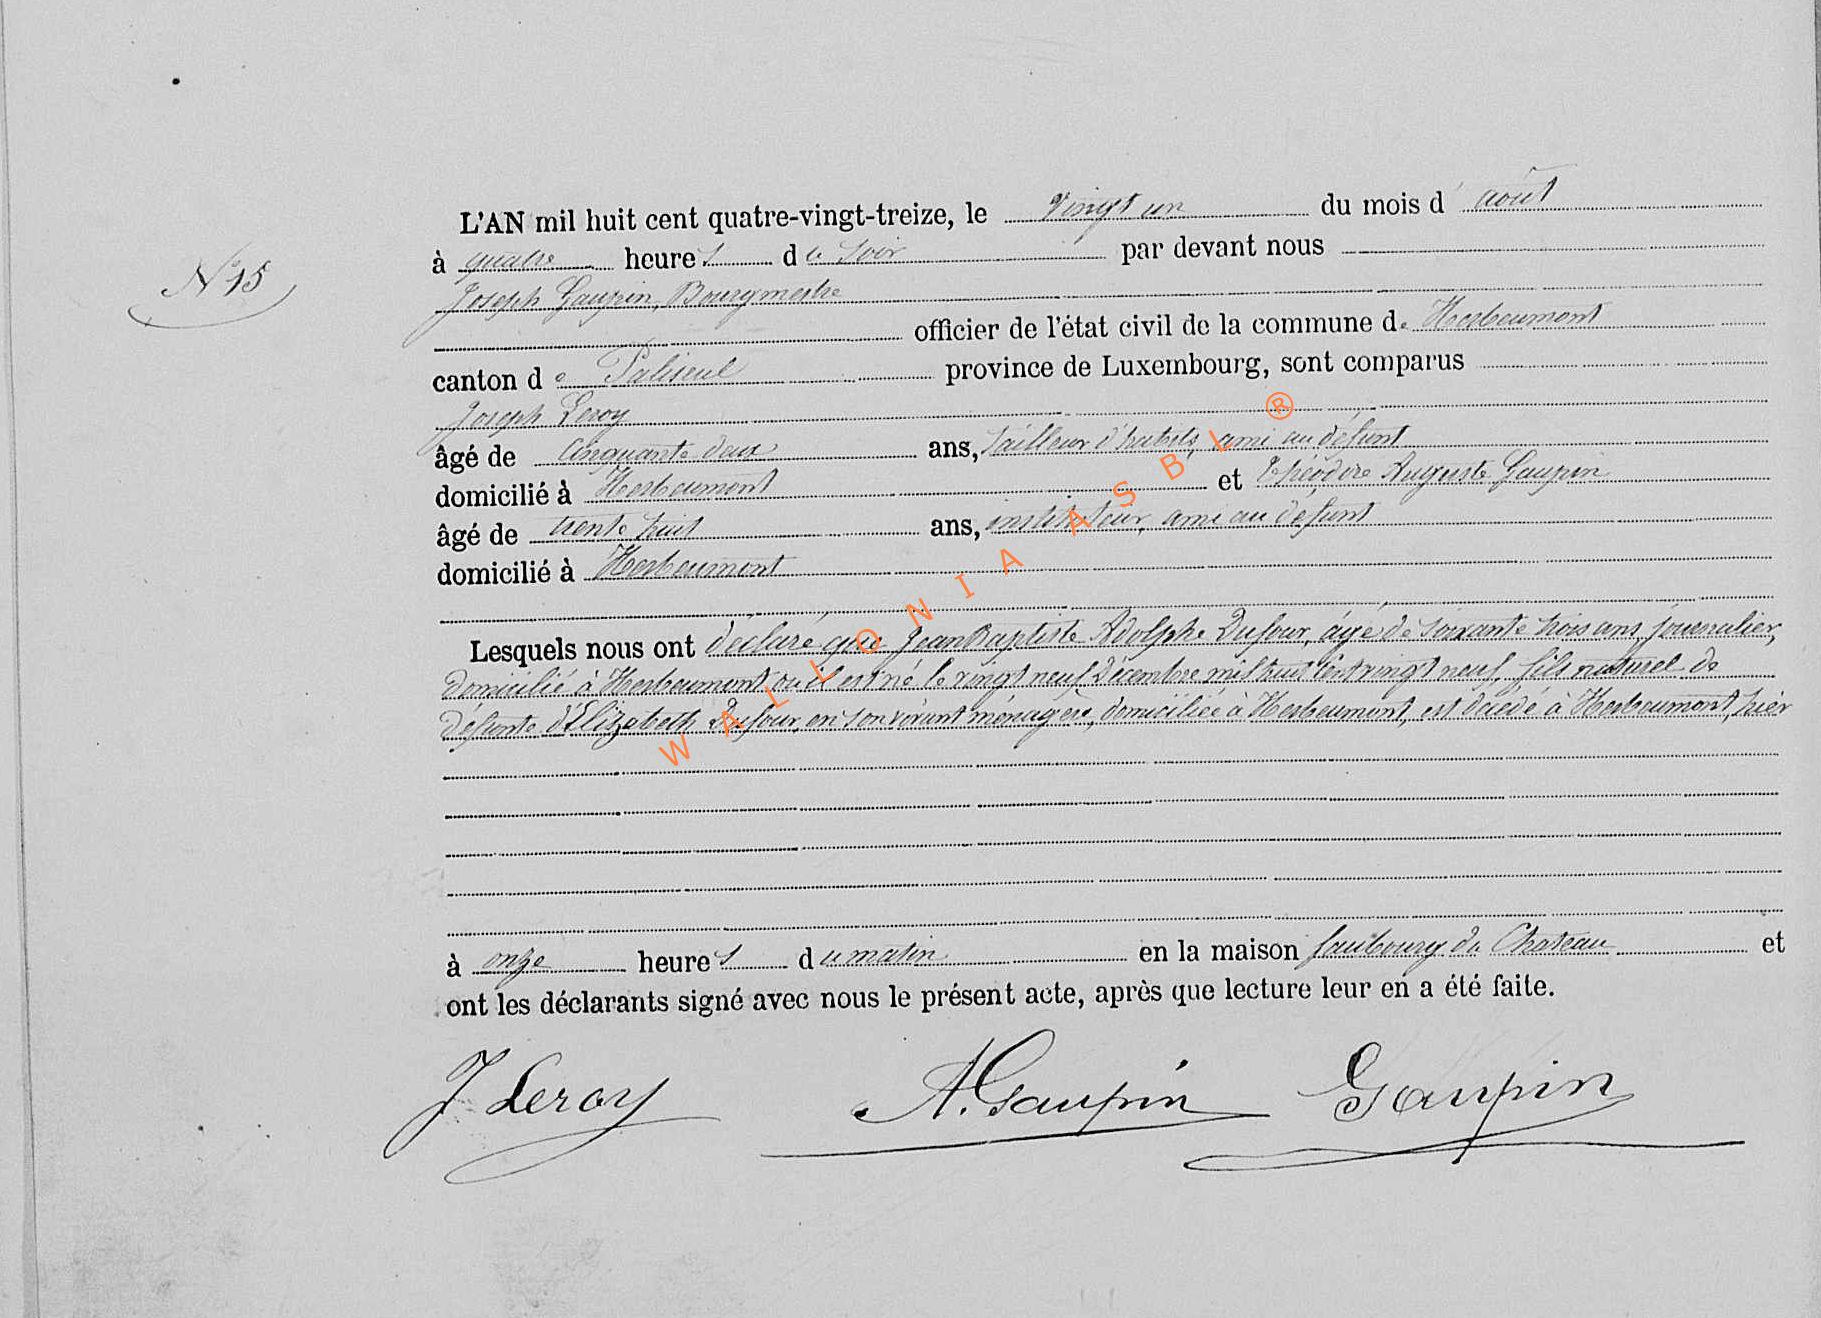 L'AN mil huit cent quatre-vingt-treize, le vingt un du mois d'août
N° 15
à quatre heures du soir par devant nous
Joseph Gaupin, Bourgmestre
officier de l'état civil de la commune de Herbeumont
canton de Paliseul province de Luxembourg, sont comparus
Joseph Leroy
âgé de cinquante deux ans, tailleur d'habits, ami au défunt
domicilié à Herbeumont et Théodore Auguste Gaupin
âgé de trente huit ans, instituteur, ami au défunt
domicilié à Herbeumont
Lesquels nous ont déclaré que Jean Baptiste Adolphe Dufour, âgé de soixante trois ans, journalier,
domicilié à Herbeumont où il est né le vingt neuf Décembre mil huit cent vingt neuf, fils naturel de
défunte d'Elizabeth Dufour, en son vivant ménagère, domiciliée à Herbeumont, est décédé à Herbeumont, hier
à onze heures du matin en la maison faubourg du Chateau et
ont les déclarants signé avec nous le présent acte, après que lecture leur en a été faite.
J Leroy A. Gaupin Gaupin
WALLONIA ASBL ®